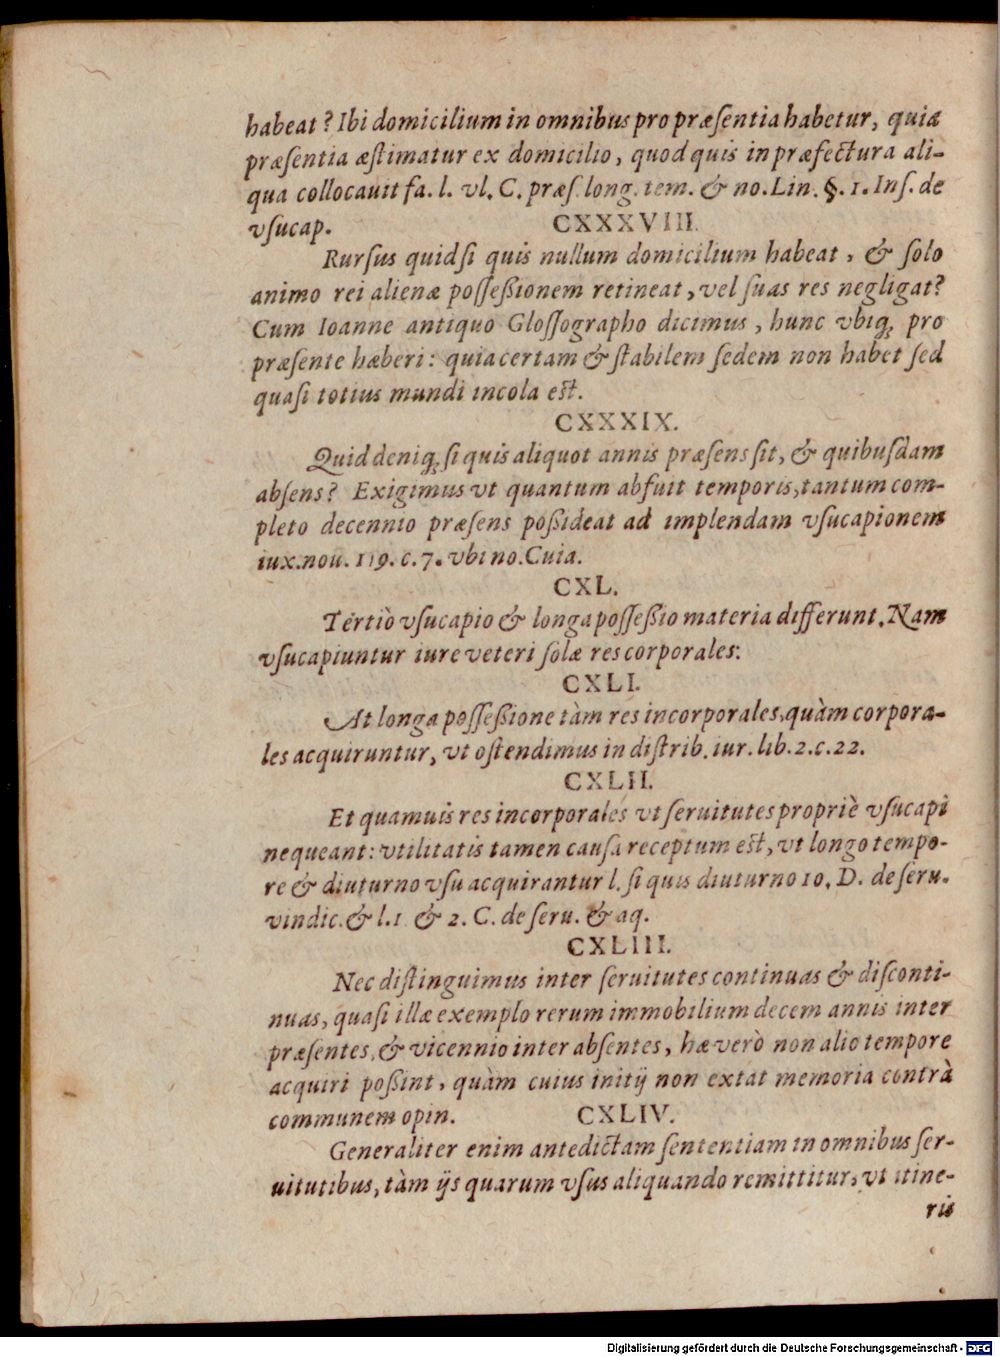 habeat? Ibi domicilium in omnibus pro præſentia habetur, quia
præſentia æſtimatur ex domicilio, quod quis in præfectura ali-
qua collocauit fa. l. vl. C. præſ. long. tem. & no. Lin. §. 1. Inſ. de
vſucap. CXXXVIII.
Rurſus quid ſi quis nullum domicilium habeat, & ſolo
animo rei alienæ poſſeßionem retineat, vel ſuas res negligat?
Cum Ioanne antiquo Gloſſographo dicimus, hunc vbiq; pro
præſente hæberi: quia certam & ſtabilem ſedem non habet ſed
quaſi totius mundi incola eſt.
CXXXIX.
Quid deniq; ſi quis aliquot annis præſens ſit, & quibuſdam
abſens? Exigimus vt quantum abfuit temporis, tantum com-
pleto decennio præſens poßideat ad implendam vſucapionem
iux. nou. 119. c. 7. vbi no. Cuia.
CXL.
Tertiò vſucapio & longa poſſeßio materia differunt. Nam
vſucapiuntur iure veteri ſolæ res corporales:
CXLI.
At longa poſſeßione tàm res incorporales, quàm corpora-
les acquiruntur, vt oſtendimus in diſtrib. iur. lib. 2. c. 22.
CXLII.
Et quamuis res incorporales vt ſeruitutes propriè vſucapi
nequeant: vtilitatis tamen cauſa receptum eſt, vt longo tempo-
re & diuturno vſu acquirantur l. ſi quis diuturno 10. D. de ſeru.
vindic. & l. 1 & 2. C. de ſeru. & aq.
CXLIII.
Nec diſtinguimus inter ſeruitutes continuas & diſconti-
nuas, quaſi illæ exemplo rerum immobilium decem annis inter
præſentes, & vicennio inter abſentes, hæ verò non alio tempore
acquiri poßint, quàm cuius initij non extat memoria contrà
communem opin. CXLIV.
Generaliter enim antedictam ſententiam in omnibus ſer-
uitutibus, tàm ijs quarum vſus aliquando remittitur, vt itine-
ris
Digitalisierung gefördert durch die Deutsche Forschungsgemeinschaft - DFG